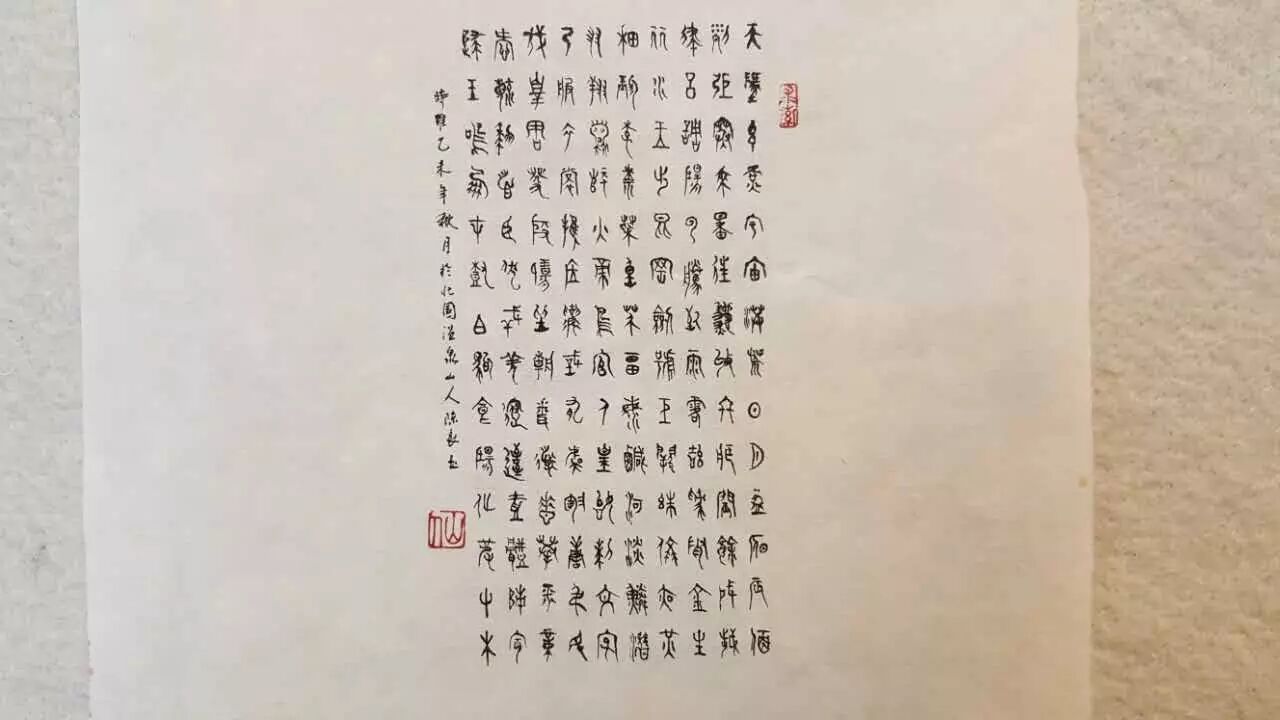 天地玄黃宇宙洪荒日月盈昃辰宿
列張寒來暑往秋收冬藏閏餘成歲
律呂調陽雲騰致雨露結為霜金生
麗水玉出崑岡劍號巨闕珠稱夜光
果珍李柰菜重芥薑海鹹河淡鱗潛
羽翔龍師火帝鳥官人皇始制文字
乃服衣裳推位讓國有虞陶唐弔民
伐罪周發殷湯坐朝問道垂拱平章
愛育黎首臣伏戎羌遐邇壹體率賓
歸王鳴鳳在樹白駒食場化被草木
時維乙未年秋月於園溫泉山人陳